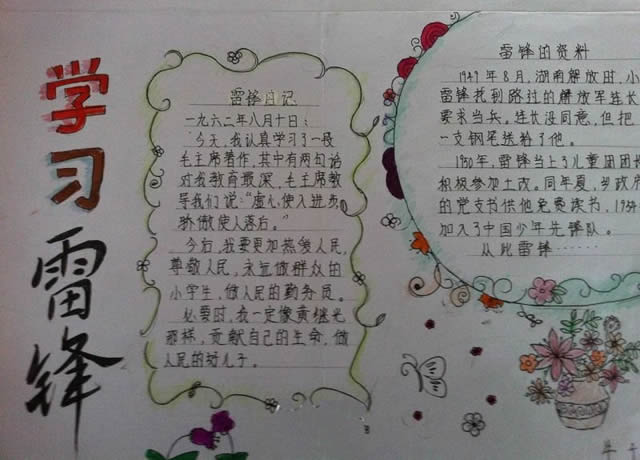 学习雷锋
雷锋日记
一九六二年八月十日：
今天，我认真学习了一段
毛主席著作，其中有两句话
对我教育最深，毛主席教
导我们说："虚心使人进步
骄傲使人落后。"
今后，我要更加热爱人民，
尊敬人民，永远做群众的
小学生，做人民的勤务员。
必要时，我一定像黄继光
那样，贡献自己的生命，做
人民的好儿子。
雷锋的资料
1949年8月，湖南解放时，小
雷锋找到路过的解放军连长
要求当兵。连长没同意，但把
一文钢笔送给了他。
1950年，雷锋当上了儿童团团长
积极参加土改。同年夏，乡政府
的党支书供他免费读书，1954
加入了中国少年先锋队。
从此雷锋······